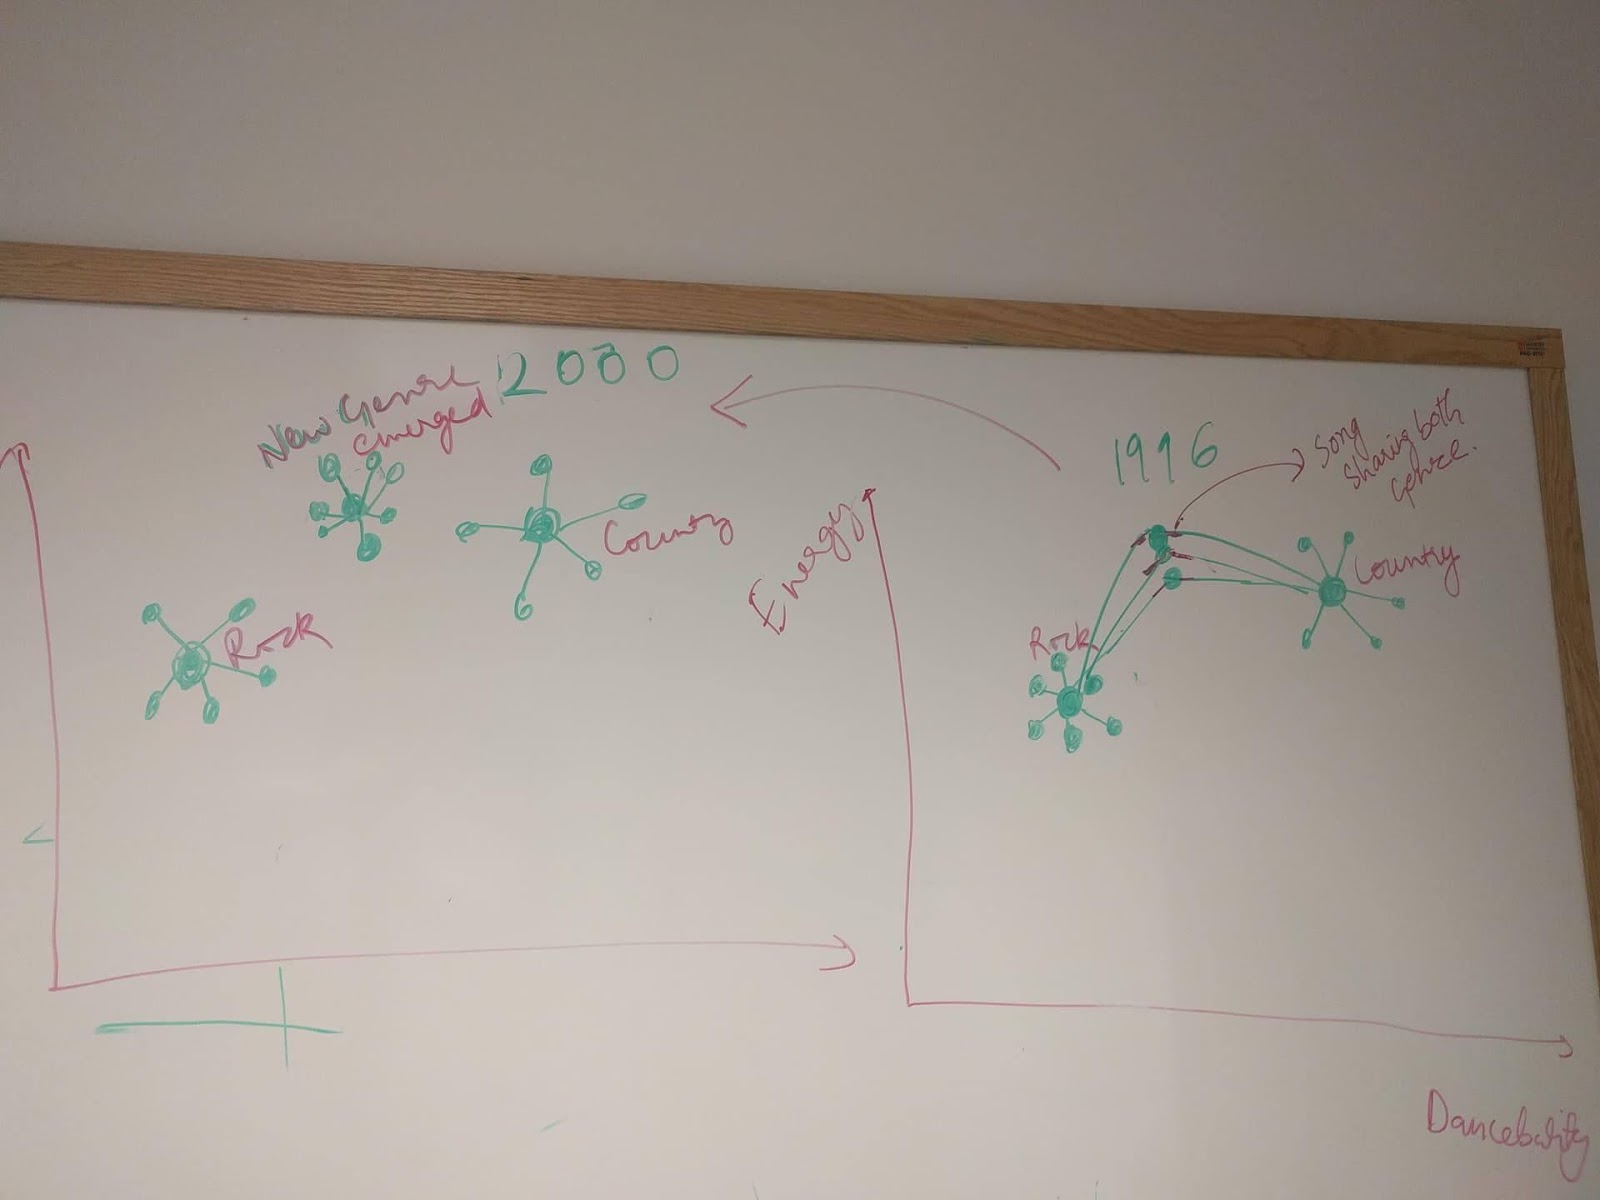 2000
New Genre
emerged
Country
Rock
1996
Song
Sharing both
Genre.
Energy
Country
Rock
Dancebality